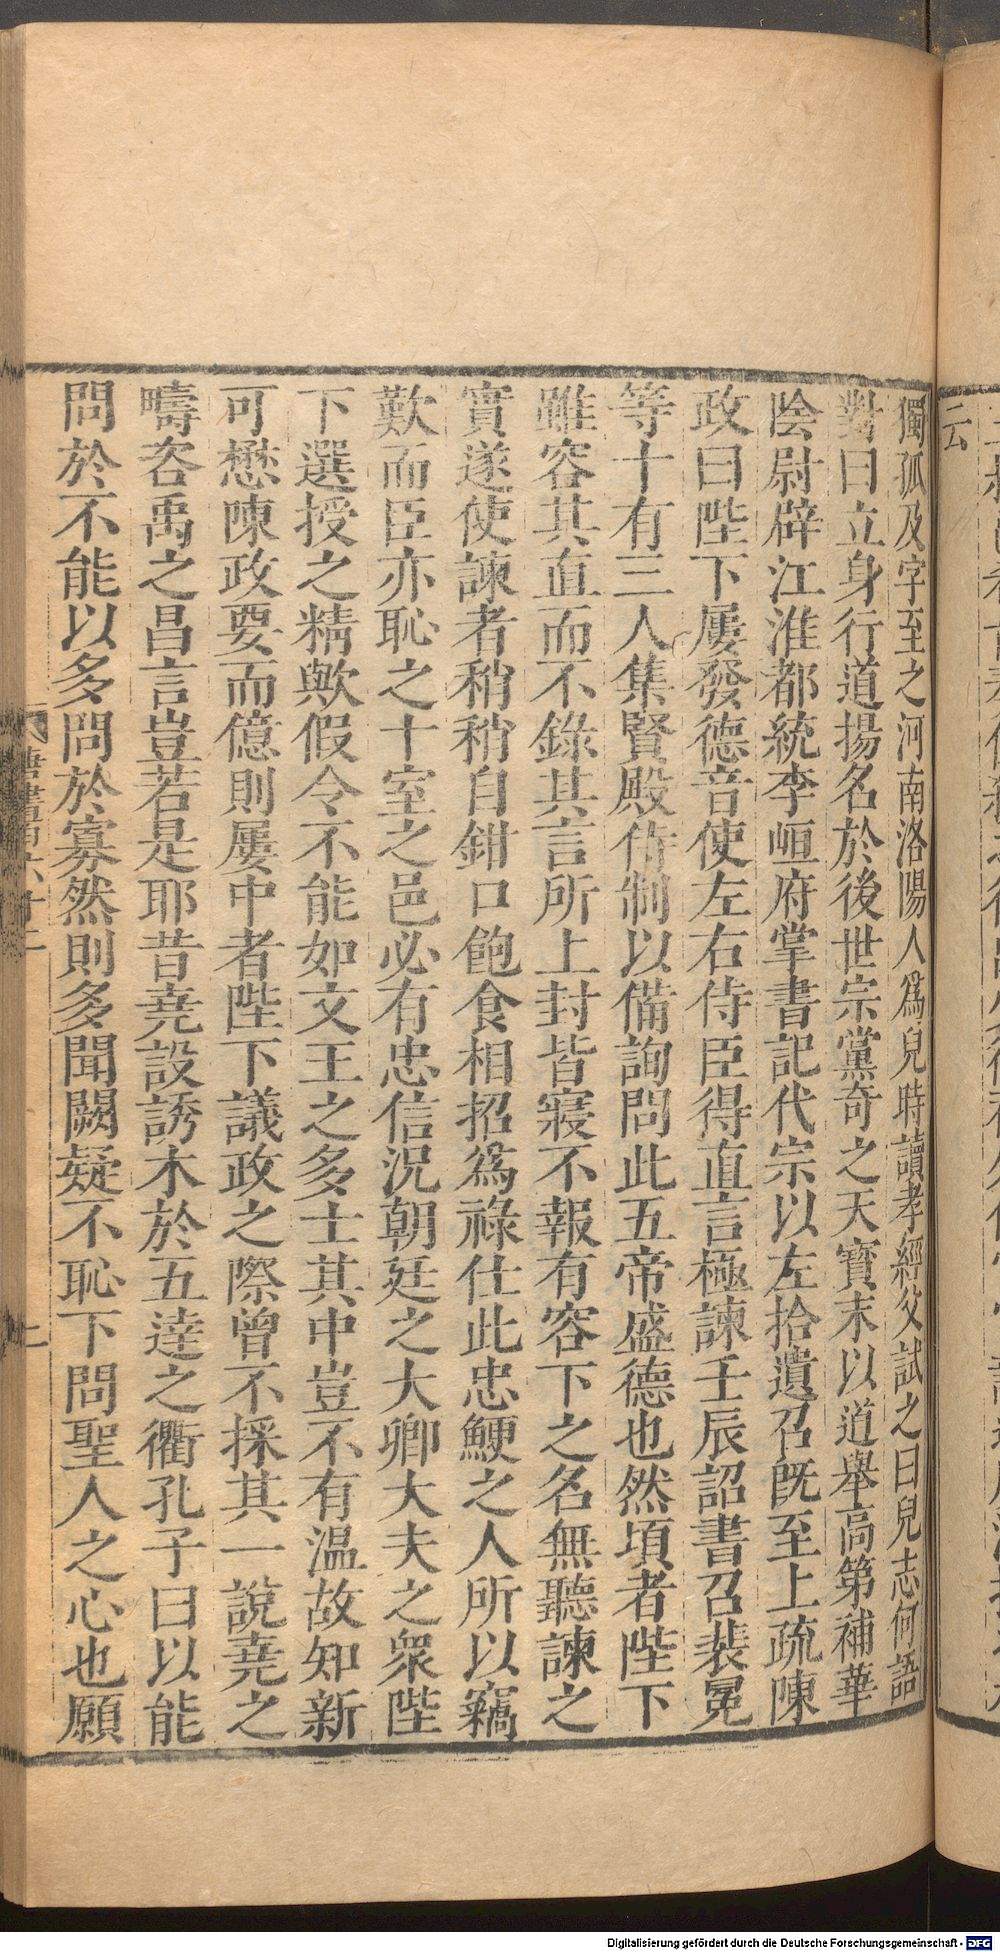 獨孤及字至之河南洛陽人爲兒時讀孝經父試之曰兒志何語
對曰立身行道揚名於後世宗黨奇之天寶末以道舉高第補華
陰尉辟江淮都統李峘府掌書記代宗以左拾遺召既至上疏陳
政曰陛下屢發德音使左右侍臣得直言極諫壬辰詔書召裴冕
等十有三人集賢殿待制以備詢問此五帝盛德也然頃者陛下
雖容其直而不錄其言所上封皆寢不報有容下之名無聽諫之
實遂使諫者稍稍自鉗口飽食相招爲祿仕此忠鯁之人所以竊
歎而臣亦恥之十室之邑必有忠信況朝廷之大卿大夫之眾陛
下選授之精歟假令不能如文王之多士其中豈不有溫故知新
可懋陳政要而億則屢中者陛下議政之際曾不採其一說堯之
疇咨禹之昌言豈若是耶昔堯設誘木於五達之衢孔子曰以能
問於不能以多問於寡然則多聞闕疑不恥下問聖人之心也願
云
Digitalisierung gefördert durch die Deutsche Forschungsgemeinschaft - DFG